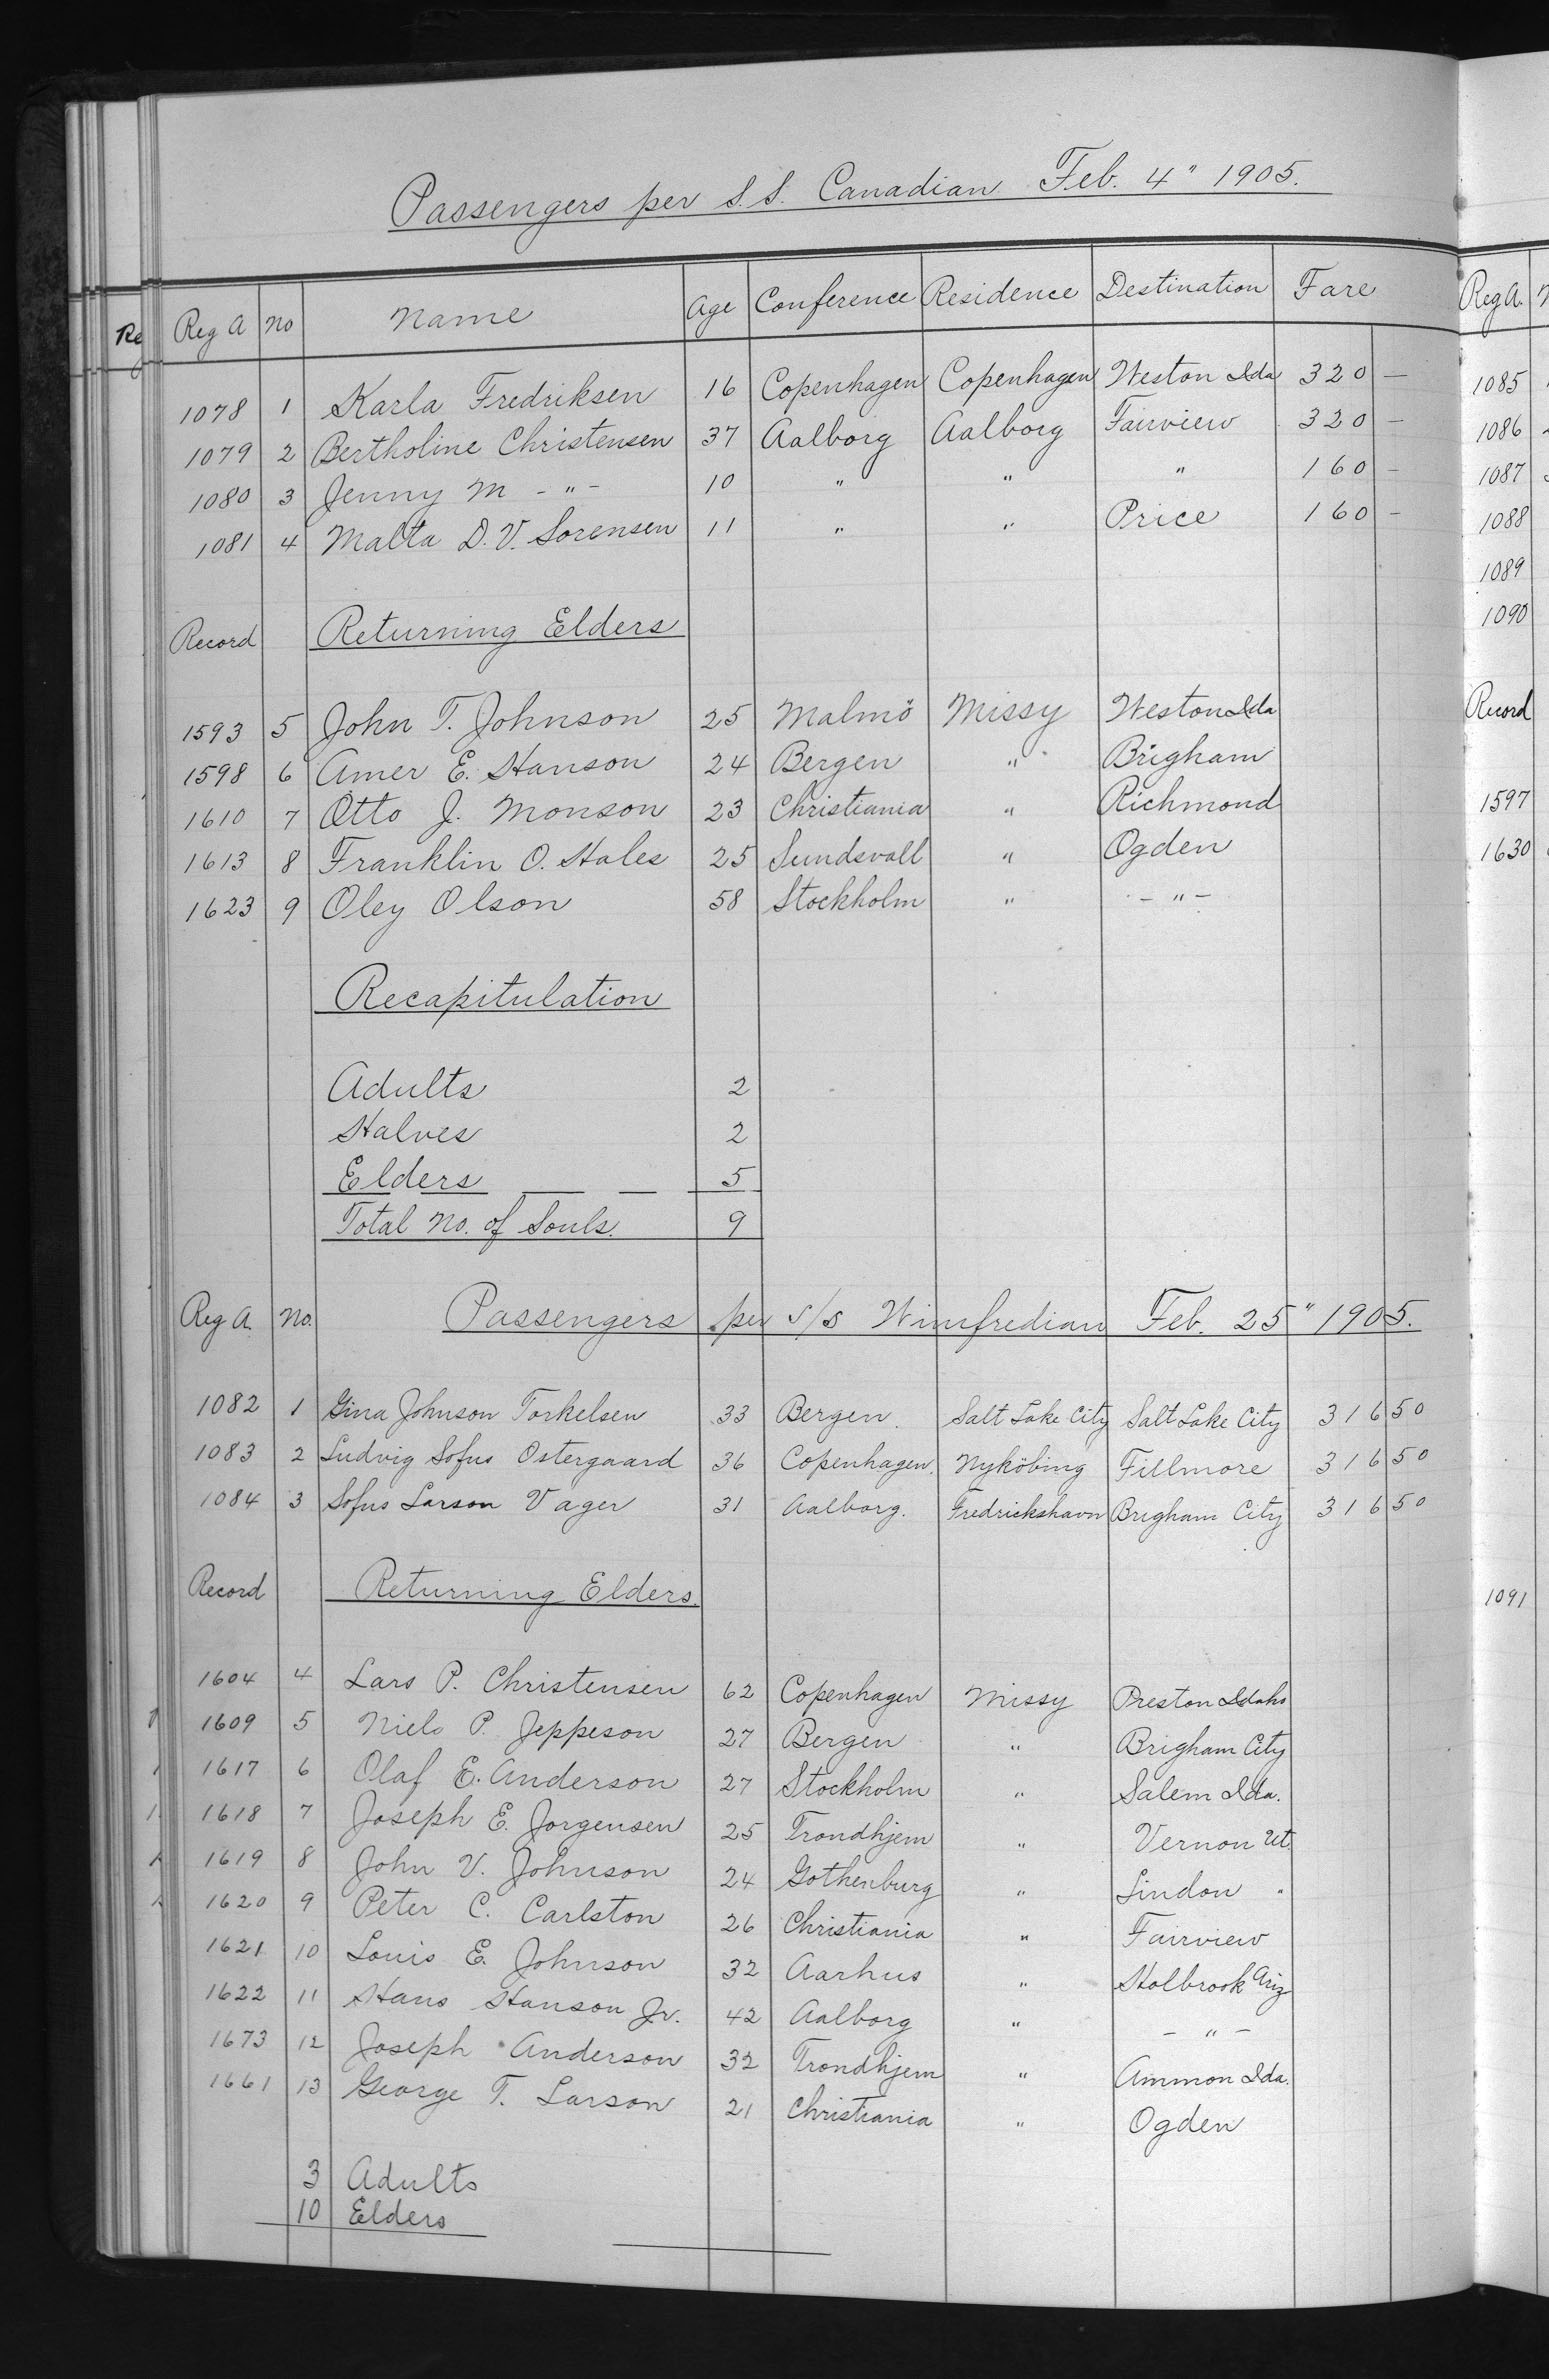 Passengers per S.S. Canadian Feb. 4" 1905.
Reg A No Name Age Conference Residence Destination Fare
1078 1 Karla Fredriksen 16 Copenhagen Copenhagen Weston Ida 320 —
1079 2 Bertholine Christensen 37 Aalborg Aalborg Fairview 320 —
1080 3 Jenny M - " - 10 " " " 160 —
1081 4 Malta D. V. Sorensen 11 " " Price 160 —
Record Returning Elders
1593 5 John T. Johnson 25 Malmö Missy Weston Ida
1598 6 Amer E. Hanson 24 Bergen " Brigham
1610 7 Otto J. Monson 23 Christiania " Richmond
1613 8 Franklin O. Hales 25 Sundsvall " Ogden
1623 9 Oley Olson 58 Stockholm " - " -
Recapitulation
Adults 2
Halves 2
Elders 5
Total No. of Souls. 9
Reg A. No. Passengers per s/s Winifredian Feb. 25" 1905.
1082 1 Gina Johnson Torkelsen 33 Bergen. Salt Lake City Salt Lake City 316 50
1083 2 Ludvig Sofus Ostergaard 36 Copenhagen. Nyköbing Fillmore 316 50
1084 3 Sofus Larson Vager 31 Aalborg. Fredrickshavn Brigham City 316 50
Record Returning Elders.
1604 4 Lars P. Christensen 62 Copenhagen Missy Preston Idaho
1609 5 Niels P. Jeppeson 27 Bergen " Brigham City
1617 6 Olaf E. Anderson 27 Stockholm " Salem Ida.
1618 7 Joseph E. Jorgensen 25 Trondhjem " Vernon Ut.
1619 8 John V. Johnson 24 Gothenburg " Lindon "
1620 9 Peter C. Carlston 26 Christiania " Fairview
1621 10 Louis E. Johnson 32 Aarhus " Holbrook Ariz
1622 11 Hans Hanson Jr. 42 Aalborg " - " -
1673 12 Joseph Anderson 32 Trondhjem " Ammon Ida.
1661 13 George T. Larson 21 Christiania " Ogden
3 Adults
10 Elders
Reg A.
1085
1086
1087
1088
1089
1090
Record
1597
1630
1091